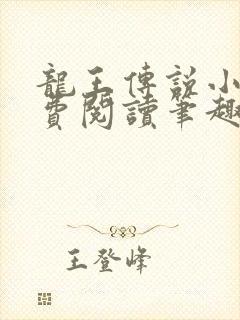 龍王傳說小
費閱讀筆趣
王登峰